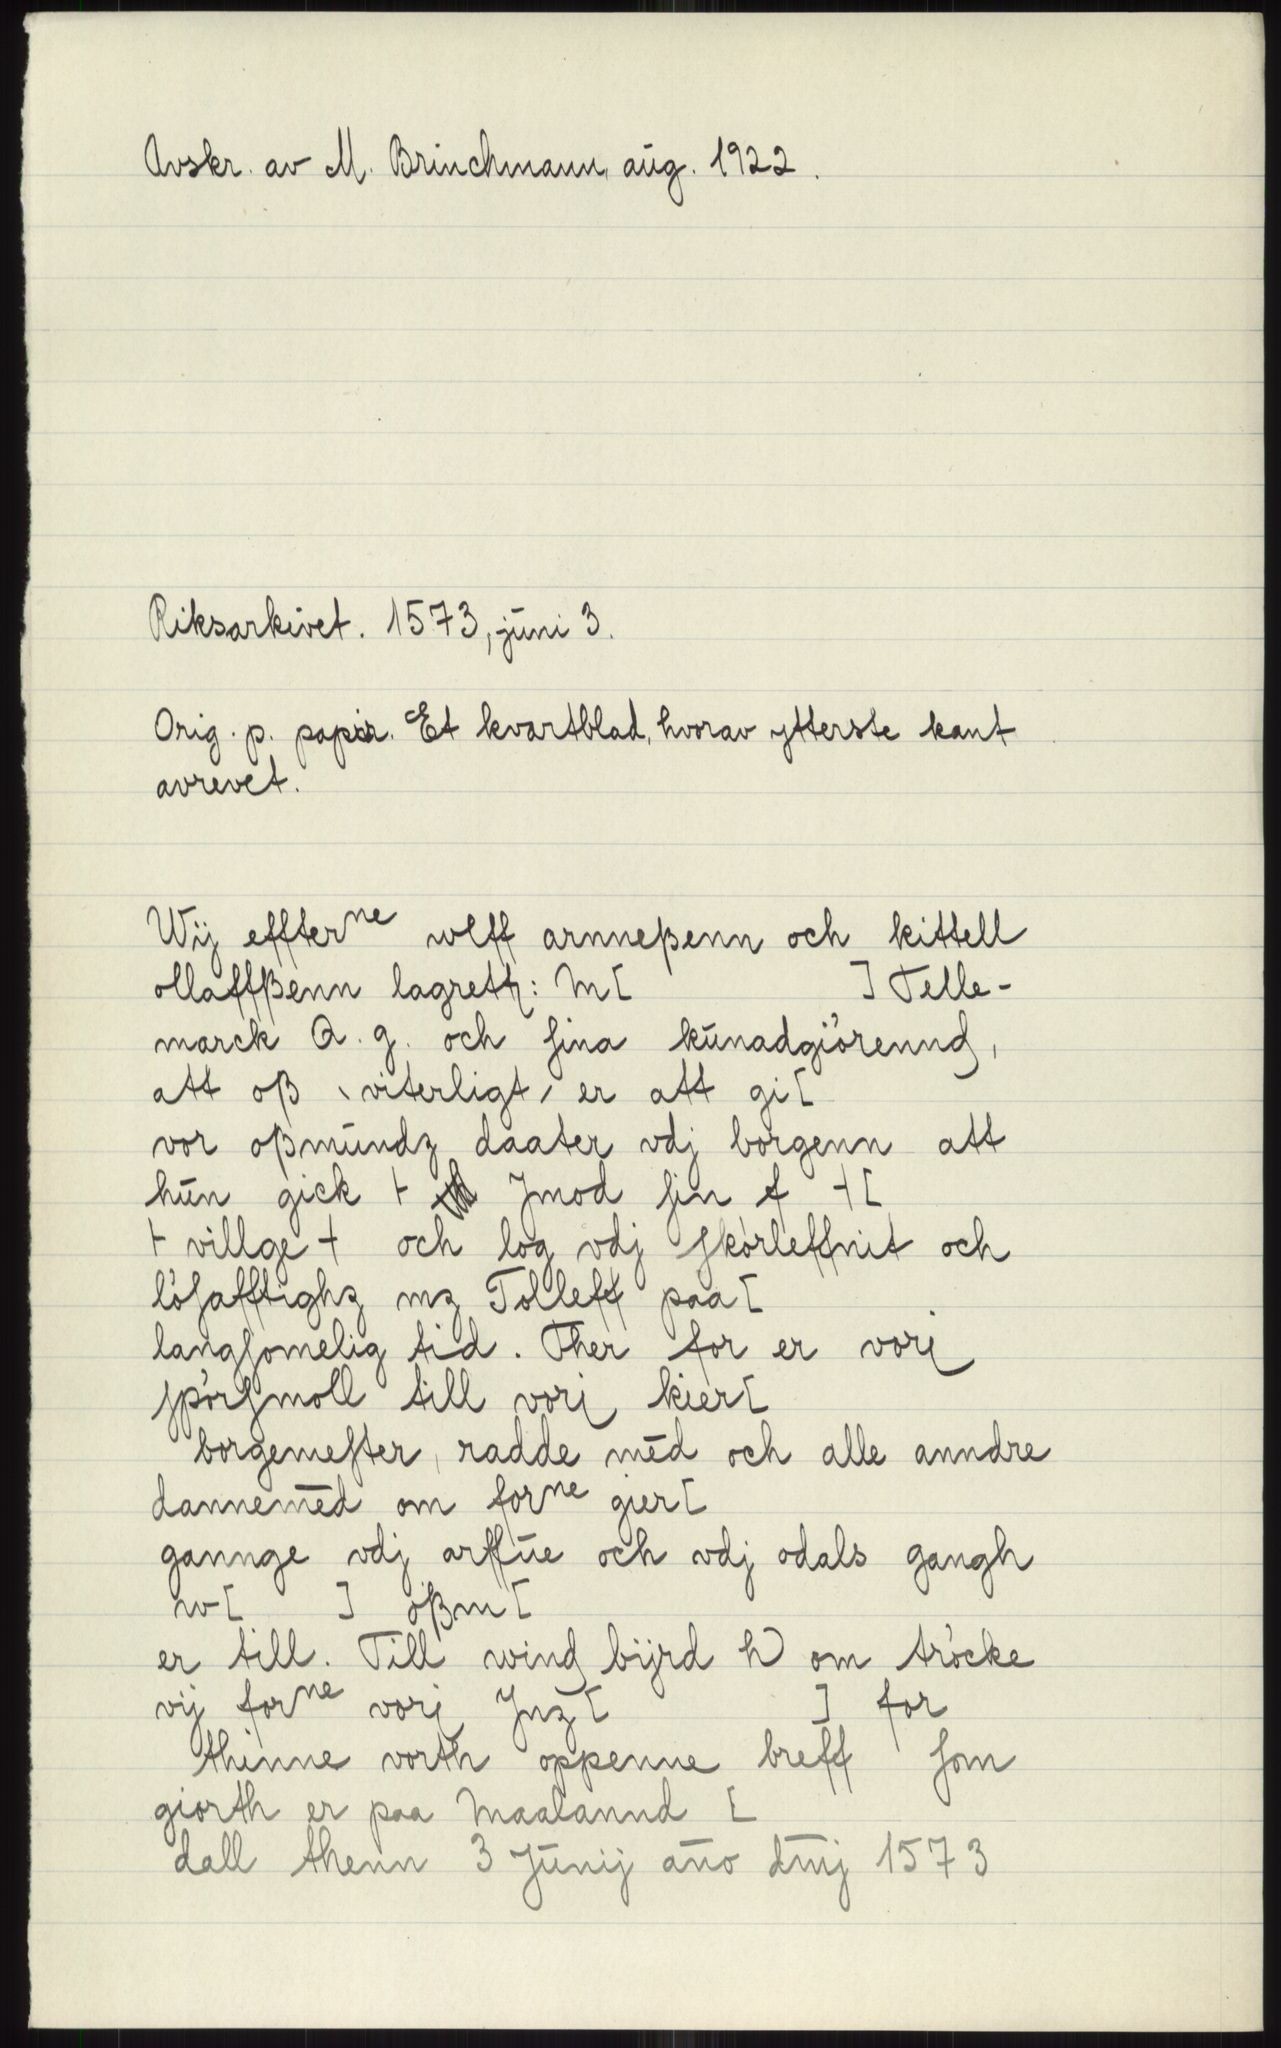 Avskr. av M. Brinchmann, aug. 1922.
Riksarkivet. 1573, juni 3.
Orig. p. papir. Et kvartblad, hvorav ytterste kant
avrevet.
Wij effterne wlff arnneßenn och kittell
ollaffßenn lagreth: M[ ] Telle-
marck Q. g. och sina kunadgiörennd,
att oß ‵viterligt′ er att gi[
vor oßmundz daater vdj borgenn att
hun gick ⊢ Jmod sin f ⊣[
⊢ villge ⊣ och log vdj skörleffnit och
lösafftighz mz Tolleff paa[
langsomelig tid. Ther for er vorj
spörsmoll till vorj kier[
borgemester, radde mēd och alle anndre
dannemēd om forne gier[
gannge vdj arffue och vdj odals gangh
w[ ] oßm[
er till. Till wind bijrd h om tröcke
vij forne vorj Jnz[ ] for
thinne vorth oppenne breff som
giorth er paa Maalannd [
dall thenn 3 Junij año dmj 1573